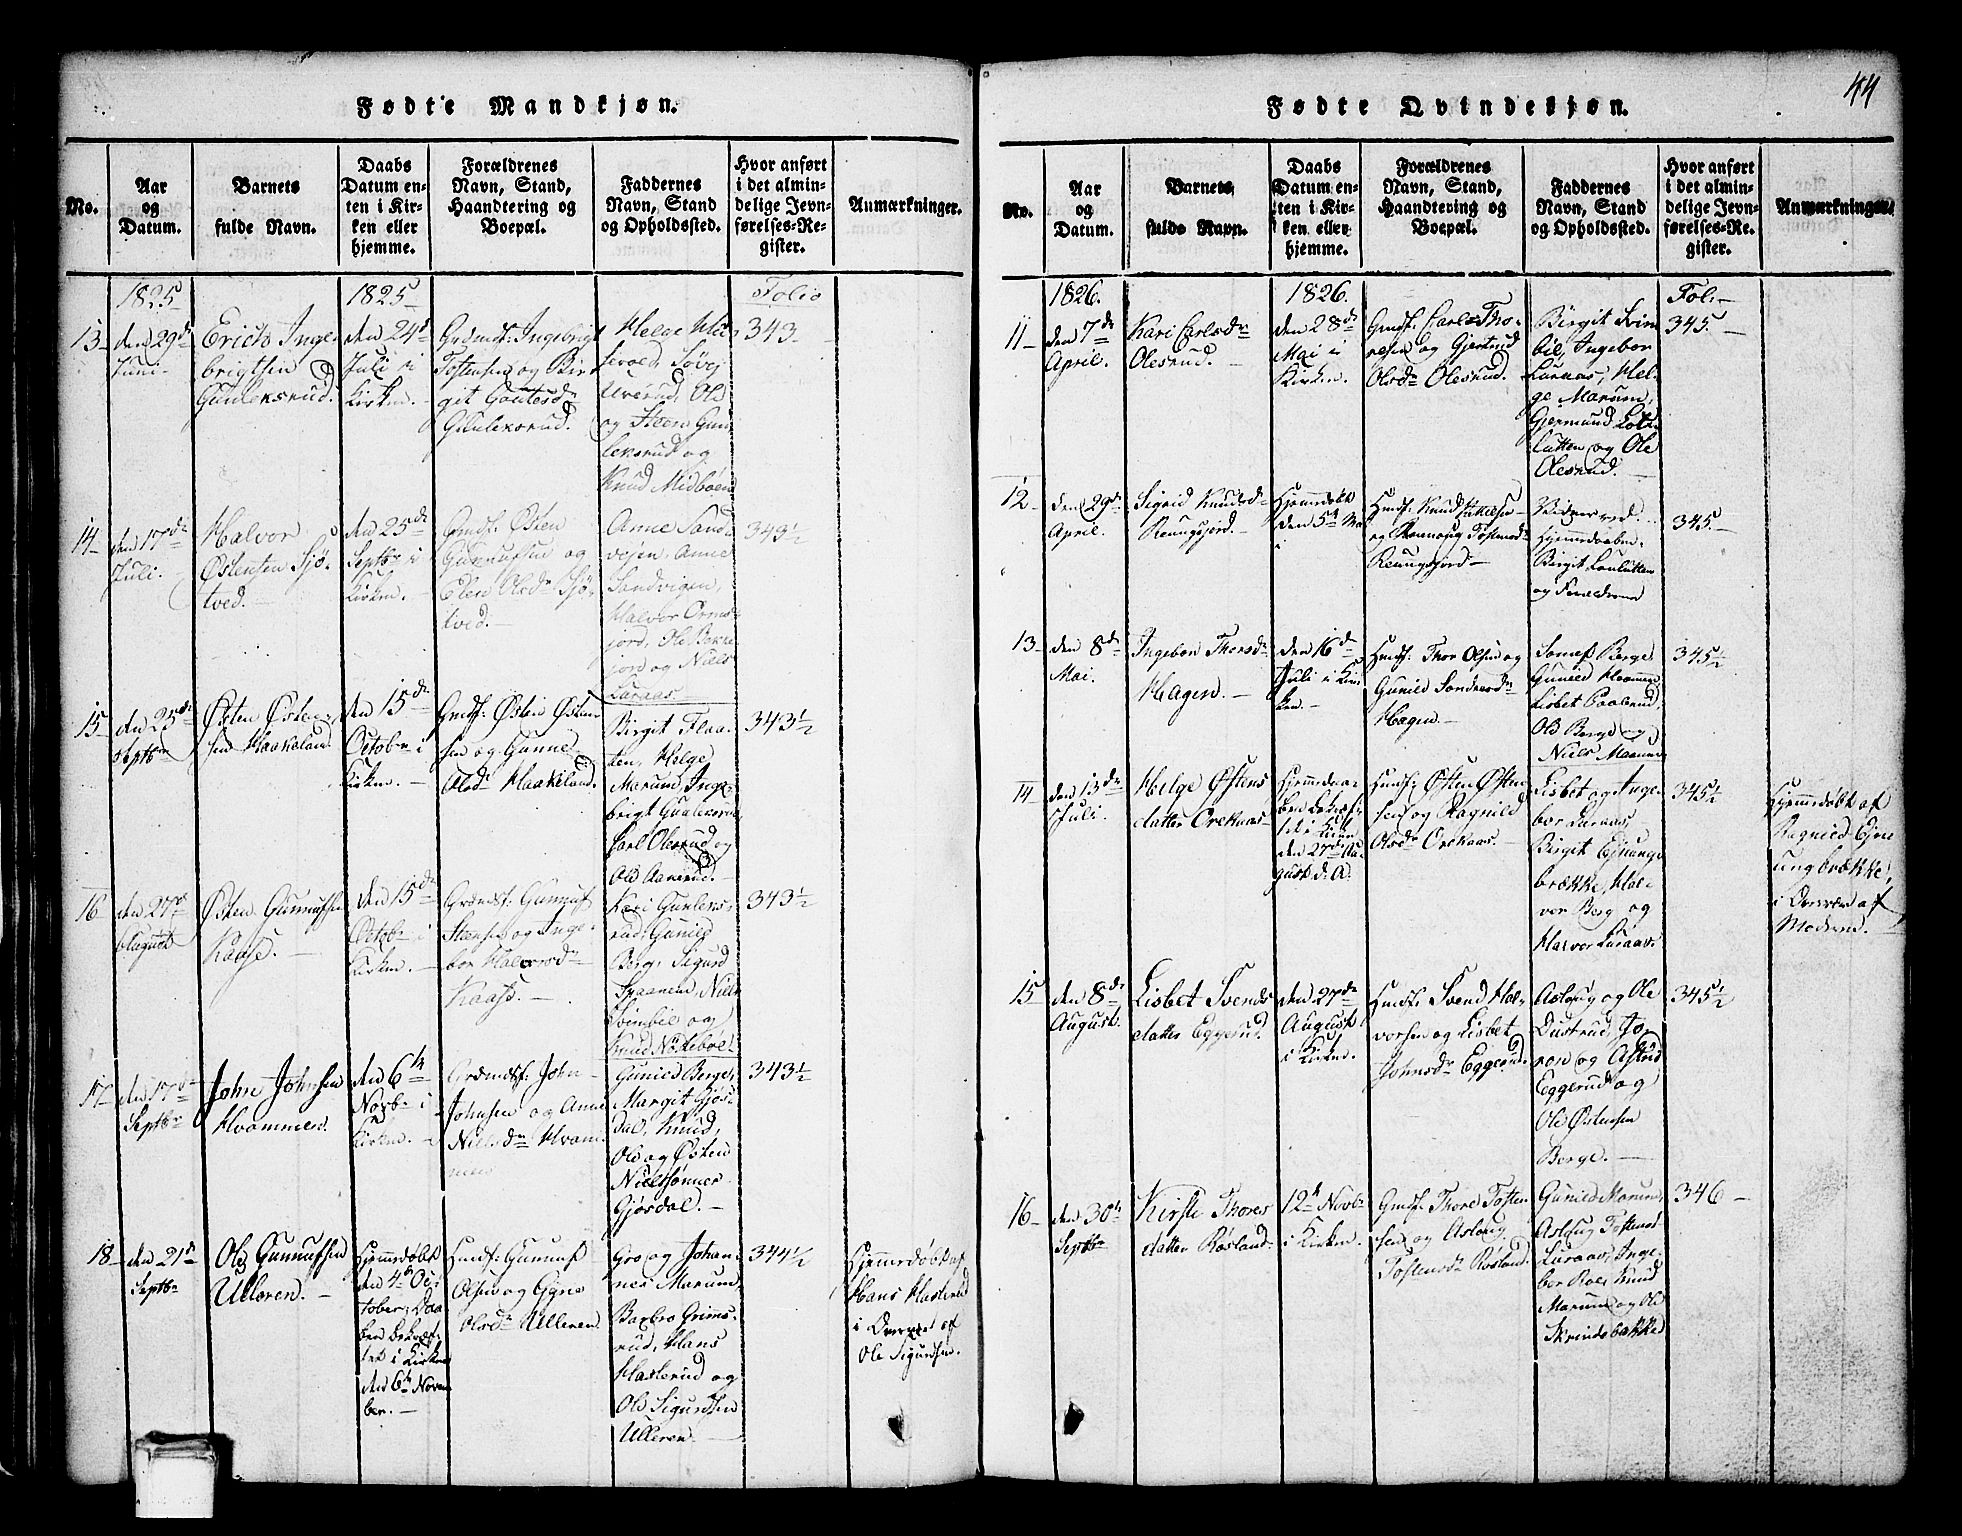 44
Fødte Mandkjøn.
No.
Aar
og
Datum.
Barnets
fulde Navn.
Daabs
Datum en-
ten i Kir-
ken eller
hjemme.
Forældrenes
Navn, Stand,
Haandtering og
Boepæl.
Faddernes
Navn, Stand
og Opholdssted.
Hvor anført
i det almin-
delige Jevn-
førelses-Re-
gister.
Anmærkninger.
1825
1825
Folio
13
den 29de
Juni
Erich Inge-
brigtsen
Gunleksrud.
den 24de
Juli i
Kirken.
Grdmdsf: Ingebrigt
Tostensen og Bir-
git Goutesdr
Gunleksrud.
Helge
Søvej
Uverud, Ole
og Steen Gun-
leksrud og
Knud Midbøen
343
14
den 17de
Juli.
Halvor
Østensen Sjø-
tved.
den 25de
Septbr i
Kirken.
Gmdsf: Østen
Gunnufsen og
Elen Olsdr Sjø-
tved.
Anne Sand-
vejen, Anne
Sandvigen,
Halvor Orms-
jord, Ole Bakke-
jord og Niels
Luraas
343½
15
den 25de
Septbr
Østen Østen-
sen Haakeland
den 15de
Octobr i
Kirken.
Gmdsf: Østen Østen-
sen og Gunne
Olsdr Haakeland.
Birgit Flaa-
ten, Helge
Marum, Inge-
brigt Gunleksrud,
Carl Olesrud og
Ole Aanerud.
343½
16
den 27de
August
Østen Gunnufsen
Kaase.
den 15de
Octobr i
Kirken.
Grdmdsf: Gunnuf
Steensen og Inge-
bor Halvorsdr
Kaase.
Kari Gunleks-
rud, Gunild
Berg, Sigurd
Spaanem, Niels
Svimbil og
Knud Nordebøe.
343½
17
den 17de
Septbr
John Johnsen
Hvammen.
den 6te
Novbr i
Kirken.
Grdmdsf: John
Johnsen og Anne
Nielsdr Hvam-
men
Gunild Berge,
Margit Gjøs-
dal, Knud,
Ole og Østen
Nielssønner
Gjøsdal.
343½
18
den 21de
Septbr
Ole Gunnufsen
Ulleren.
Hjemmdøbt
den 4de Oc-
tober, Daa-
ben bekræf-
tet i Kirken
den 6te Novem-
ber.
Hmdsf: Gunnuf
Olsen og Gyne
Olsdr Ulleren.
Gro og Johan-
nes Marum,
Barbro Grims-
rud, Hans
Hasterud og
Ole Sigurdsen
Ulleren.
344½
Hjemmedøbt af
Hans Hasterud
i Overvær af
Ole Sigurdsen.
Fødte Qvindekjøn.
No.
Aar
og
Datum.
Barnets
fulde Navn.
Daabs
Datum en-
ten i Kir-
ken eller
hjemme.
Forældrenes
Navn, Stand,
Haandtering og
Boepæl.
Faddernes
Navn, Stand
og Opholdssted.
Hvor anført
i det almin-
delige Jevn-
førelses-Re-
gister.
Anmærkninger.
1826.
1826.
Fol:
11
den 7de
April.
Kari Carlsdr
Olesrud.
den 28de
Mai i
Kirken.
Gmdsf: Carl Tho-
resen og Gjertrud
Olsdr Olesrud.
Birgit Svim-
bil, Ingebor
Luraas, Hel-
ge Marum,
Gjermund
lutten og Ole
Olesrud.
345
12
den 29de
April.
Sigrid Knudsdr
Reungsjord.
Hjemmdøbt
den 5te Ma
i
Hmdsf: Knud
og Tostensdr
Reungsjord
ved
Hjemmedaaben.
Birgit Loulutten
og Forældrene
345
13
den 8de
Mai.
Ingebor Thorsdr
Hagen.
den 16de
Juli i Kir-
ken.
Hmdsf: Thor Olsen og
Gunild Sondresdr
Hagen.
Berge
Gunild
Lisbet Paalsrud,
Ole Berge og
Niels Marum
345½
14
den 13de
Juli.
Helge Østens
datter Orekaas
Hjemmedaa-
ben bekræf-
tet i Kirken
den 27de Au-
gust d: A:
Hmdsf: Østen Østen-
sen og Ragnild
Olsdr Orekaas.
Lisbet og Inge-
bor Luraas
Birgit Ejeunge-
brække, Hal-
vor Berg og
Halvor Luraas
345½
Hjemmedøbt af
Ragnild Ejne
ungbrække,
i Overvær af
Moderen.
15
den 8de
August.
Lisbet Svends
datter Eggerud.
den 27de
August
i Kirken.
Hmdsf: Svend Hal-
vorsen og Lisbet
Johnsdr Eggerud.
Aslaug og Ole
Dustrud, Jo-
ron og Astrid
Eggerud og
Ole Østensen
Berge.
345½
16
den 30te
Septbr
Kirsti Thores
datter Rosland
12te Novbr
i Kirken.
Gmdsf: Thore Tosten-
sen og Aslaug
Tostensdr Rosland.
Gunild Marum,
Aslaug Tostensdr
Luraas, Inge-
bor Roe, Knud
Marum og Ole
Skrindsbakke
346